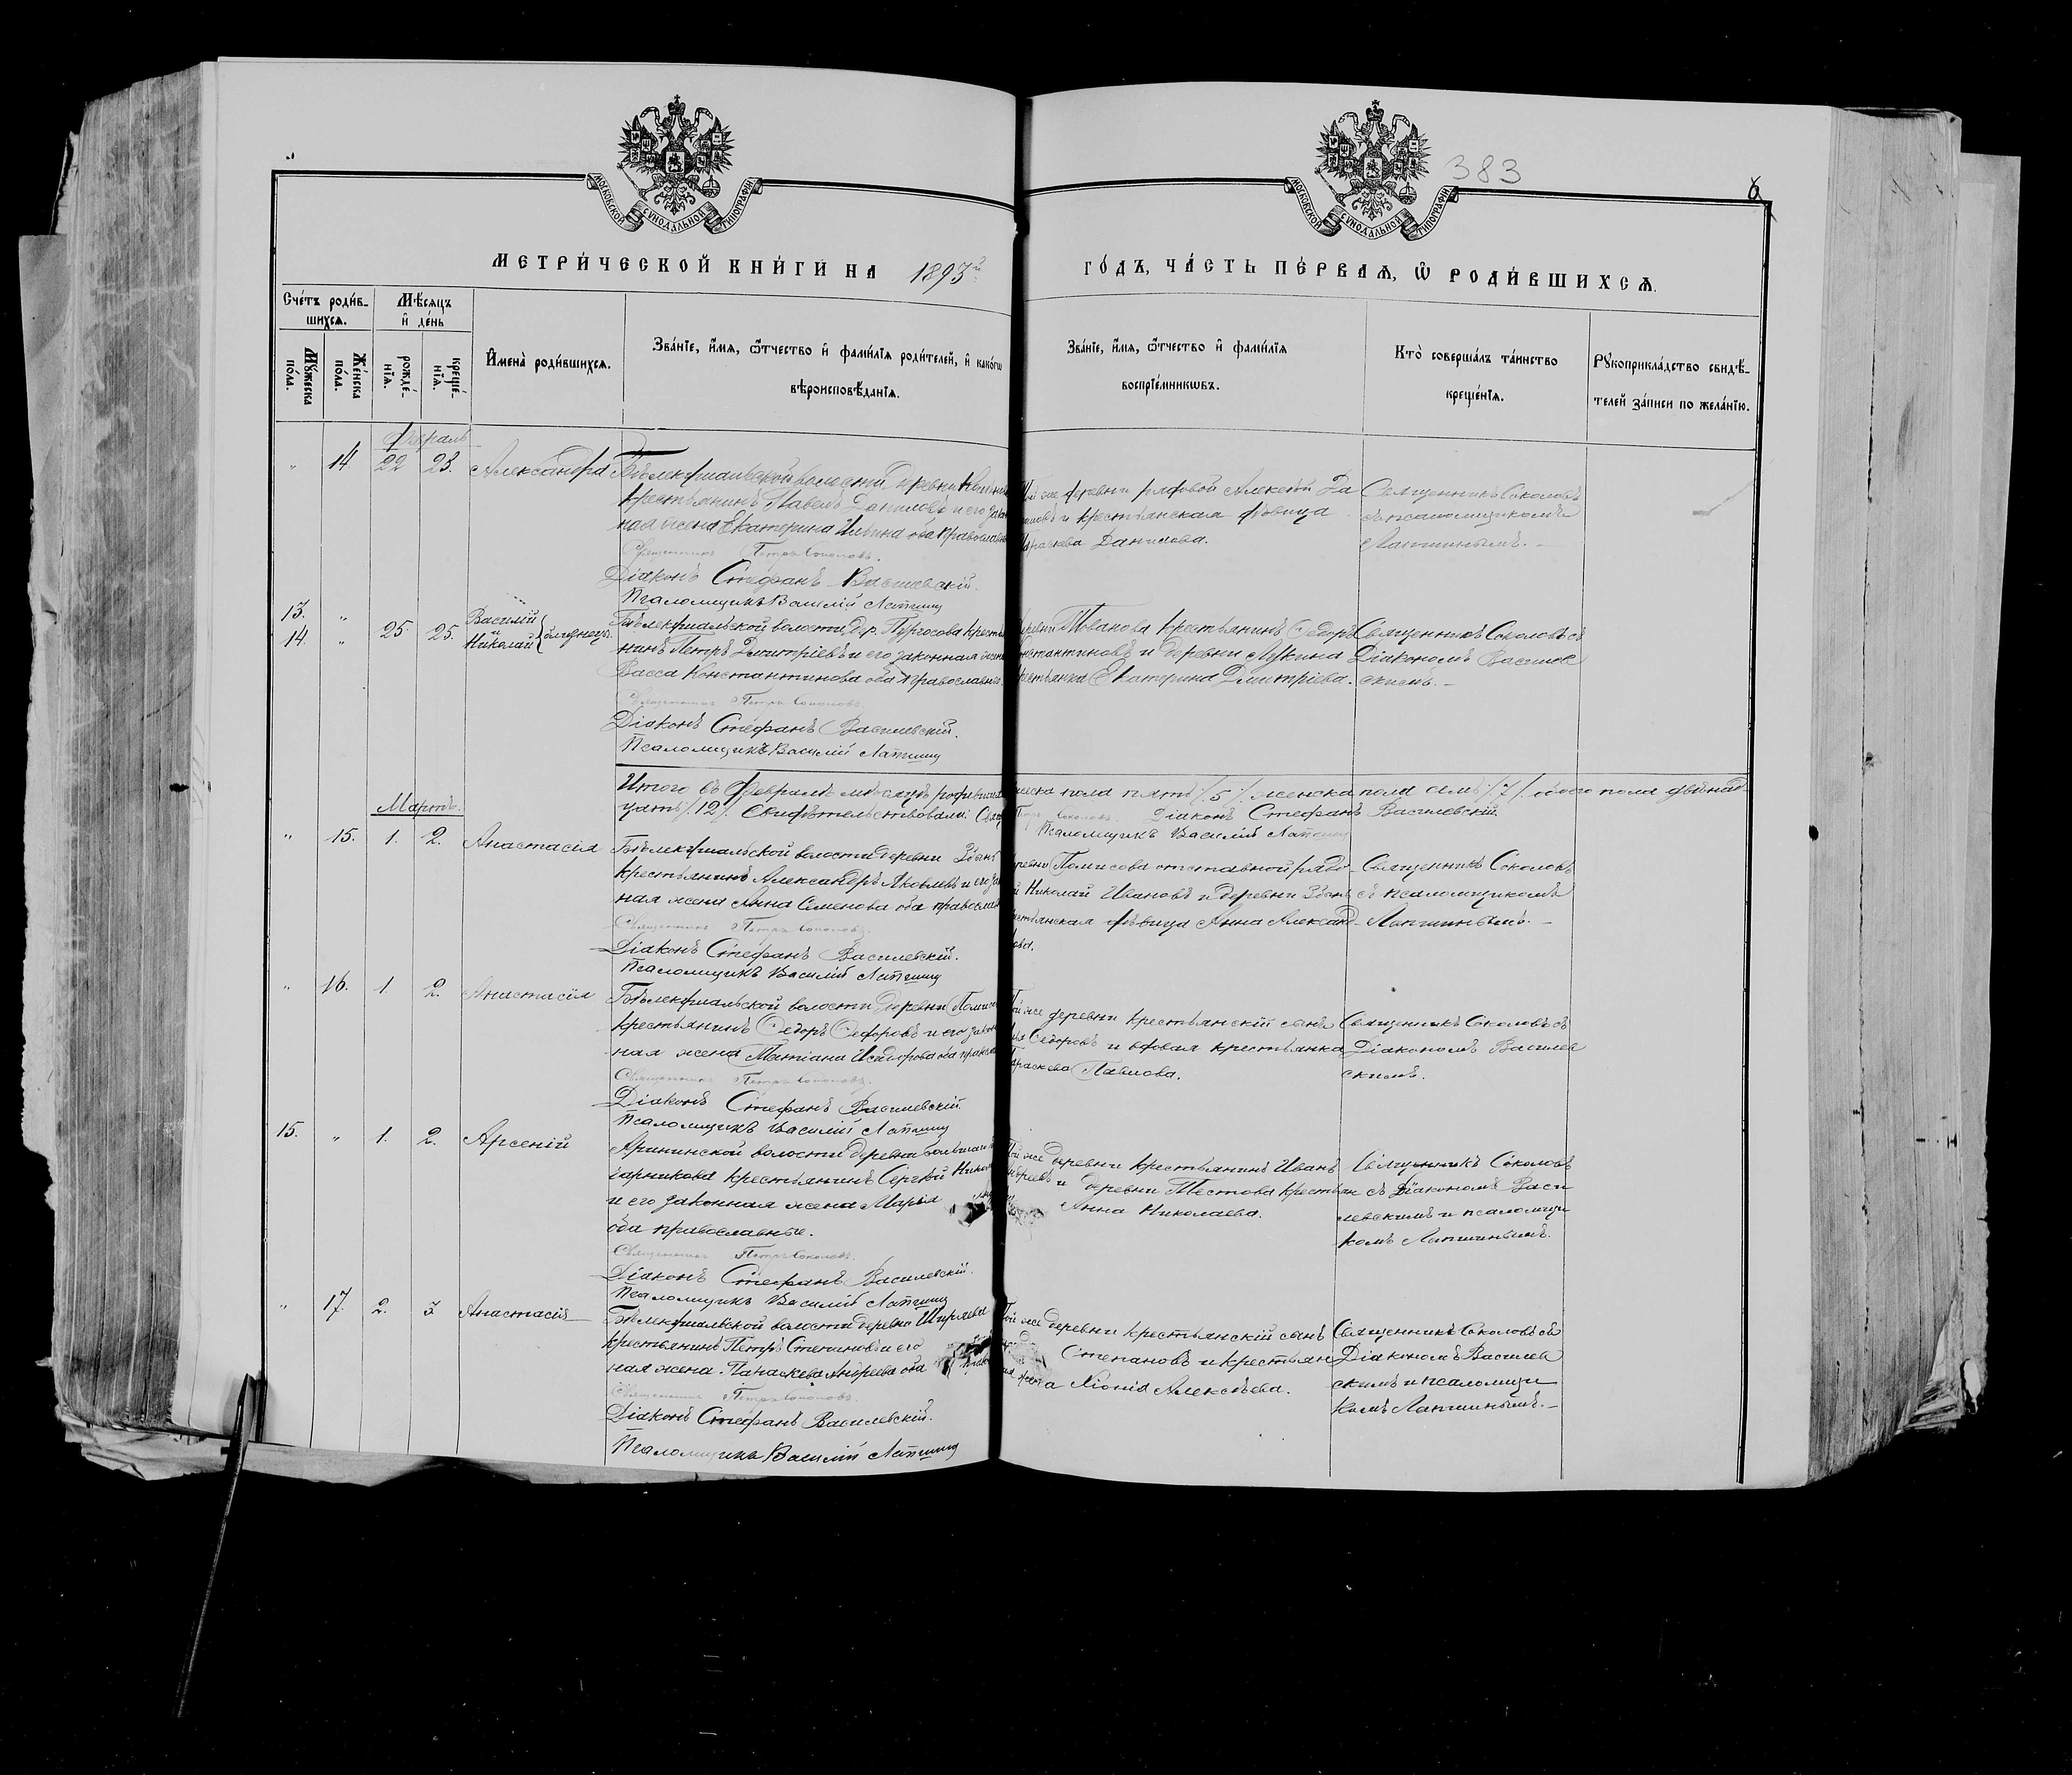 383
6
МОСКОВСКОЙ СѴНОДАЛЬНОЙ ТИПОГРАФІИ
МОСКОВСКОЙ СѴНОДАЛЬНОЙ ТИПОГРАФІИ
МЕТРИ́ЧЕСКОЙ КНИ́ГИ НА 1893й
ГО́ДЪ, ЧА́СТЬ ПЕ́РВАѦ, Ѡ҆ РОДИ́ВШИХСѦ.
Сче́тъ роди́в-
шихся.
Мѣ́сяцъ
и҆ де́нь
Мꙋ́жеска
по́ла.
Же́нска
по́ла.
рожде́-
нїя.
креще́-
нїя.
И҆мена̀ роди́вшихся.
Зва́нїе, и҆́мя, ѻ҆́тчество и҆ фами́лїя роди́телей, и҆ како́гѡ
вѣроисповѣ́данїя.
Зва́нїе, и҆́мя, ѻ҆́тчество и҆ фами́лїя
воспрїе́мникѡвъ.
Кто̀ соверша́лъ та́инство
креще́нїя.
Рꙋкоприкла́дство свидѣ́-
телей за́писи по жела́нїю.
Февраль
" 14. 22 23. Александра
волости деревни
крестьянинъ Павелъ Даниловъ и его
ная жена Екатерина Ильина оба
Священникъ Петръ Соколовъ.
Діаконъ Стефанъ Василевскій.
Псаломщикъ Василій Лапшинъ
же деревни рядовой Алексѣй Да
и крестьянская дѣвица
Данилова.
Священникъ Соколовъ
съ псаломщикомъ
Лапшинымъ.
13. "
14. "
25. 25.
Василій
и
Николай близнецы.
волости, дер.
нинъ Петръ Димитріевъ и его законная
Васса Константинова оба
Священникъ Петръ Соколовъ.
Діаконъ Стефанъ Василевскій.
Псаломщикъ Василій Лапшинъ
Иванова крестьянинъ Ѳедоръ
и деревни Лукина
Екатерина Димитріева.
Священникъ Соколовъ съ
Діакономъ Василев
скимъ.
Итого въ Февралѣ мѣсяцѣ
пола пять /5/, женска пола семь /7/, обоего пола двѣнад
цать /12/. Свидѣтельствовали:
Діаконъ Стефанъ Василевскій.
Псаломщикъ Василій Лапшинъ
Мартъ.
" 15. 1. 2. Анастасія
волости деревни
крестьянинъ Александръ Яковлевъ и его
ная жена Анна Семенова оба
Священникъ Петръ Соколовъ.
Діаконъ Стефанъ Василевскій.
Псаломщикъ Василій Лапшинъ
отставной рядо
Николай Ивановъ и деревни
дѣвица Анна Александ
Священникъ Соколовъ
съ псаломщикомъ
Лапшинымъ.
" 16. 1. 2. Анастасія
волости деревни
крестьянинъ Ѳедоръ Ѳедоровъ и его
ная жена Татіана Исидорова оба
Священникъ Петръ Соколовъ.
Діаконъ Стефанъ Василевскій.
Псаломщикъ Василій Лапшинъ
же деревни крестьянскій сынъ
Ѳедоровъ и вдовая крестьянка
Павлова.
Священникъ Соколовъ съ
Діакономъ Василев
скимъ.
15. " 1. 2. Арсеній
волости деревни
крестьянинъ Сергѣй
и его законная жена Марья
оба православные.
Священникъ Петръ Соколовъ.
Діаконъ Стефанъ Василевскій.
Псаломщикъ Василій Лапшинъ
же деревни крестьянинъ Иванъ
и деревни Тестова
Анна Николаева.
Священникъ Соколовъ
съ Діакономъ Васи
левскимъ и псаломщи
комъ Лапшинымъ.
" 17. 2. 3 Анастасія
волости деревни Ширяева
крестьянинъ Петръ Степановъ и его
ная жена Параскева Андреева оба
Священникъ Петръ Соколовъ.
Діаконъ Стефанъ Василевскій.
Псаломщикъ Василій Лапшинъ
Той же деревни крестьянскій сынъ
Степановъ и крестьян
Хіонія Алексѣева.
Священникъ Соколовъ съ
Діакономъ Василев
скимъ и псаломщи
комъ Лапшинымъ.